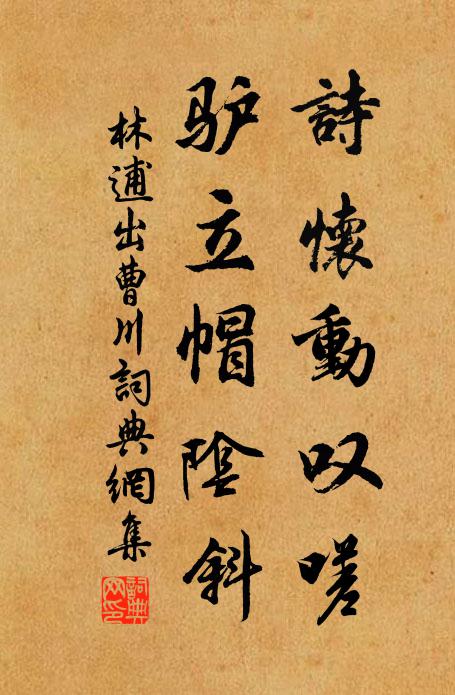 詩懷動叹嗟
驴立帽陰斜
林逋出曹川詞典網集
詞典网印